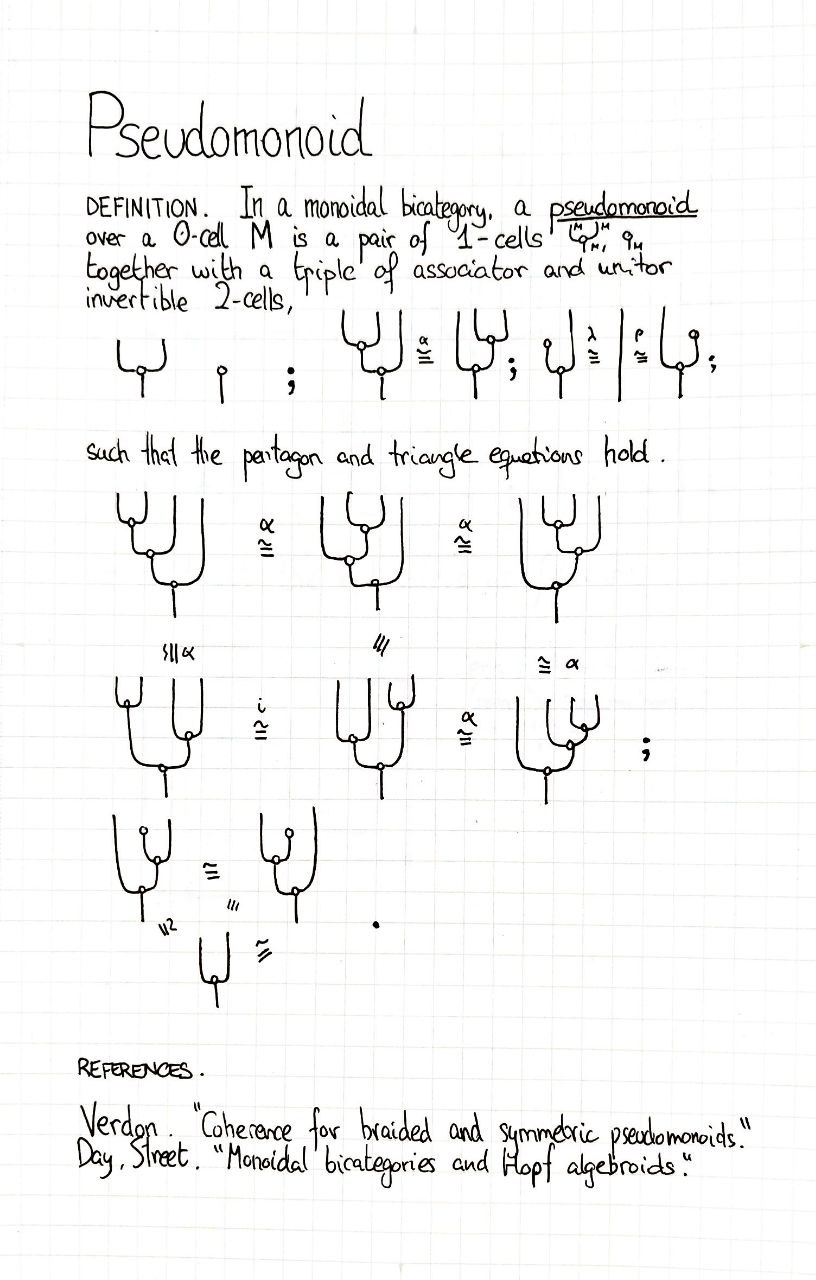 Pseudomonoid
DEFINITION. In a monoidal bicategory, a pseudomonoid
over a 0-cell M is a pair of 1-cells
together with a triple of associator and unitor
invertible 2-cells,
; α ≅ ; λ ≅ ρ ≅ ;
such that the pentagon and triangle equations hold.
α ≅ α ≅
≅ α /// ≅ α
i ≅ α ≅ ;
≅
≅ /// .
≅
REFERENCES.
Verdon. "Coherence for braided and symmetric pseudomonoids."
Day, Street. "Monoidal bicategories and Hopf algebroids."